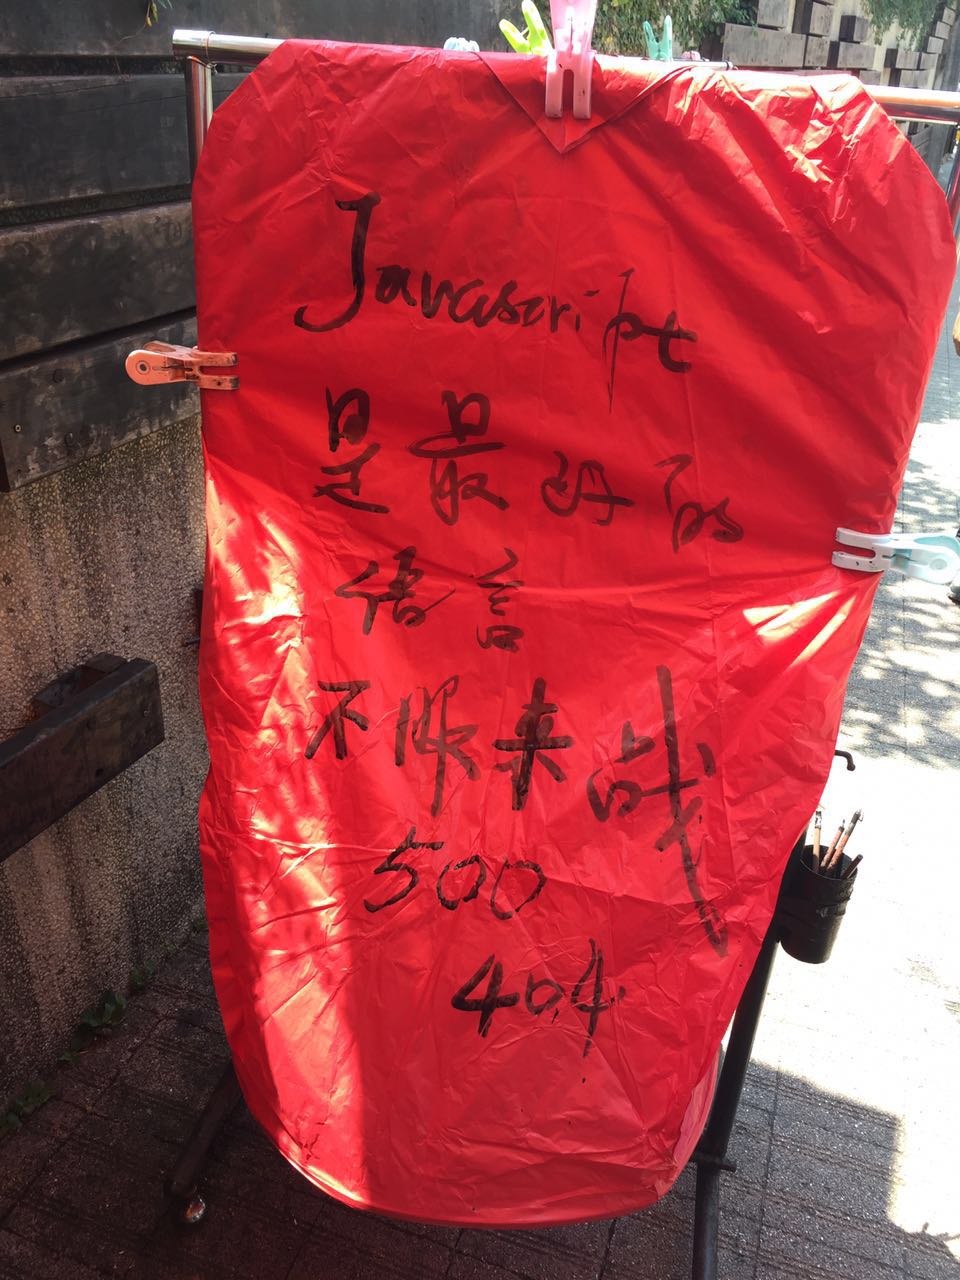 Javascript
是最好的
语言
不服来战
500
404